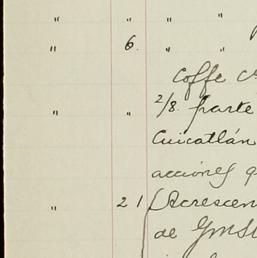 " " " "
" 6. " "
Coffe
2/8. parte
" " Cuicatlán
acciones
" 21 (Acrescen
de